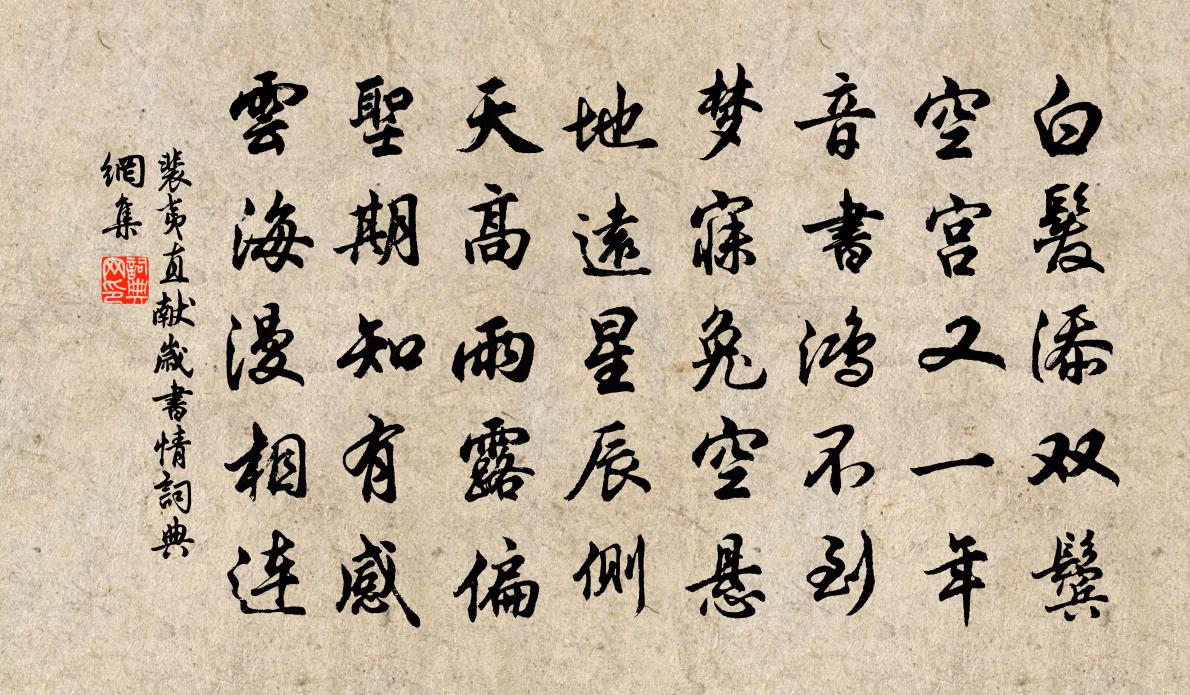 白髮添双鬓
空宫又一年
音書鸿不到
梦寐兔空悬
地遠星辰侧
天高雨露偏
聖期知有感
雲海漫相連
裴夷直献歲書情詞典
網集
詞典网印